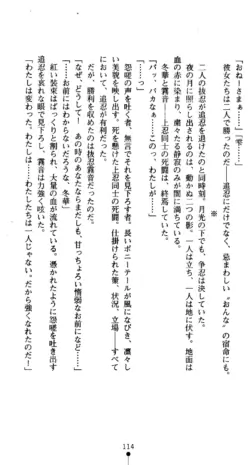 「おねーさまぁ……」「雫……」
彼女たちは二人で勝ったのだ！　――追忍にだけでなく、忌まわしい〝おんな〟の影に。
※
二人の抜忍が追忍を退けたのと同時刻。月光の下でも、争忍は決していた。
夜の月に照らし出されるのは、動かぬ二つの影。一人は立ち、一人は地に伏す。地面は
血の赤に染まり、粛々たる静寂のみが闇に満ちている。
冬華と霧音――上忍同士の死闘は、終焉していた。
「バ、バカなぁ……こ、このっ、わたしが……っ」
「…………」
怨嗟の声を吐く者。無言でそれを見下ろす者。長いポニーテールが風になびき、凛々し
い美貌を映し出す。死を懸けた上忍同士の死闘。仕掛けられた策、状況、立場――すべて
において、追忍が有利だった。
だが、勝利を収めたのは抜忍の霧音だった。
「なぜ、どうして……あの時のあなたならまだしも、甘っちょろい惰弱なお前などに！」
「……お前にはわからないだろうな、冬華」
紅い装束はばっくりと削られ、大量の血が流れている。憑かれたように怨嗟を吐き出す
追忍を哀れな眼で見下ろし、霧音は力強く呟いた。
「わたしは変わった。わたしは……わたしたちは一人じゃない。だから強くなれたのだ！」
114